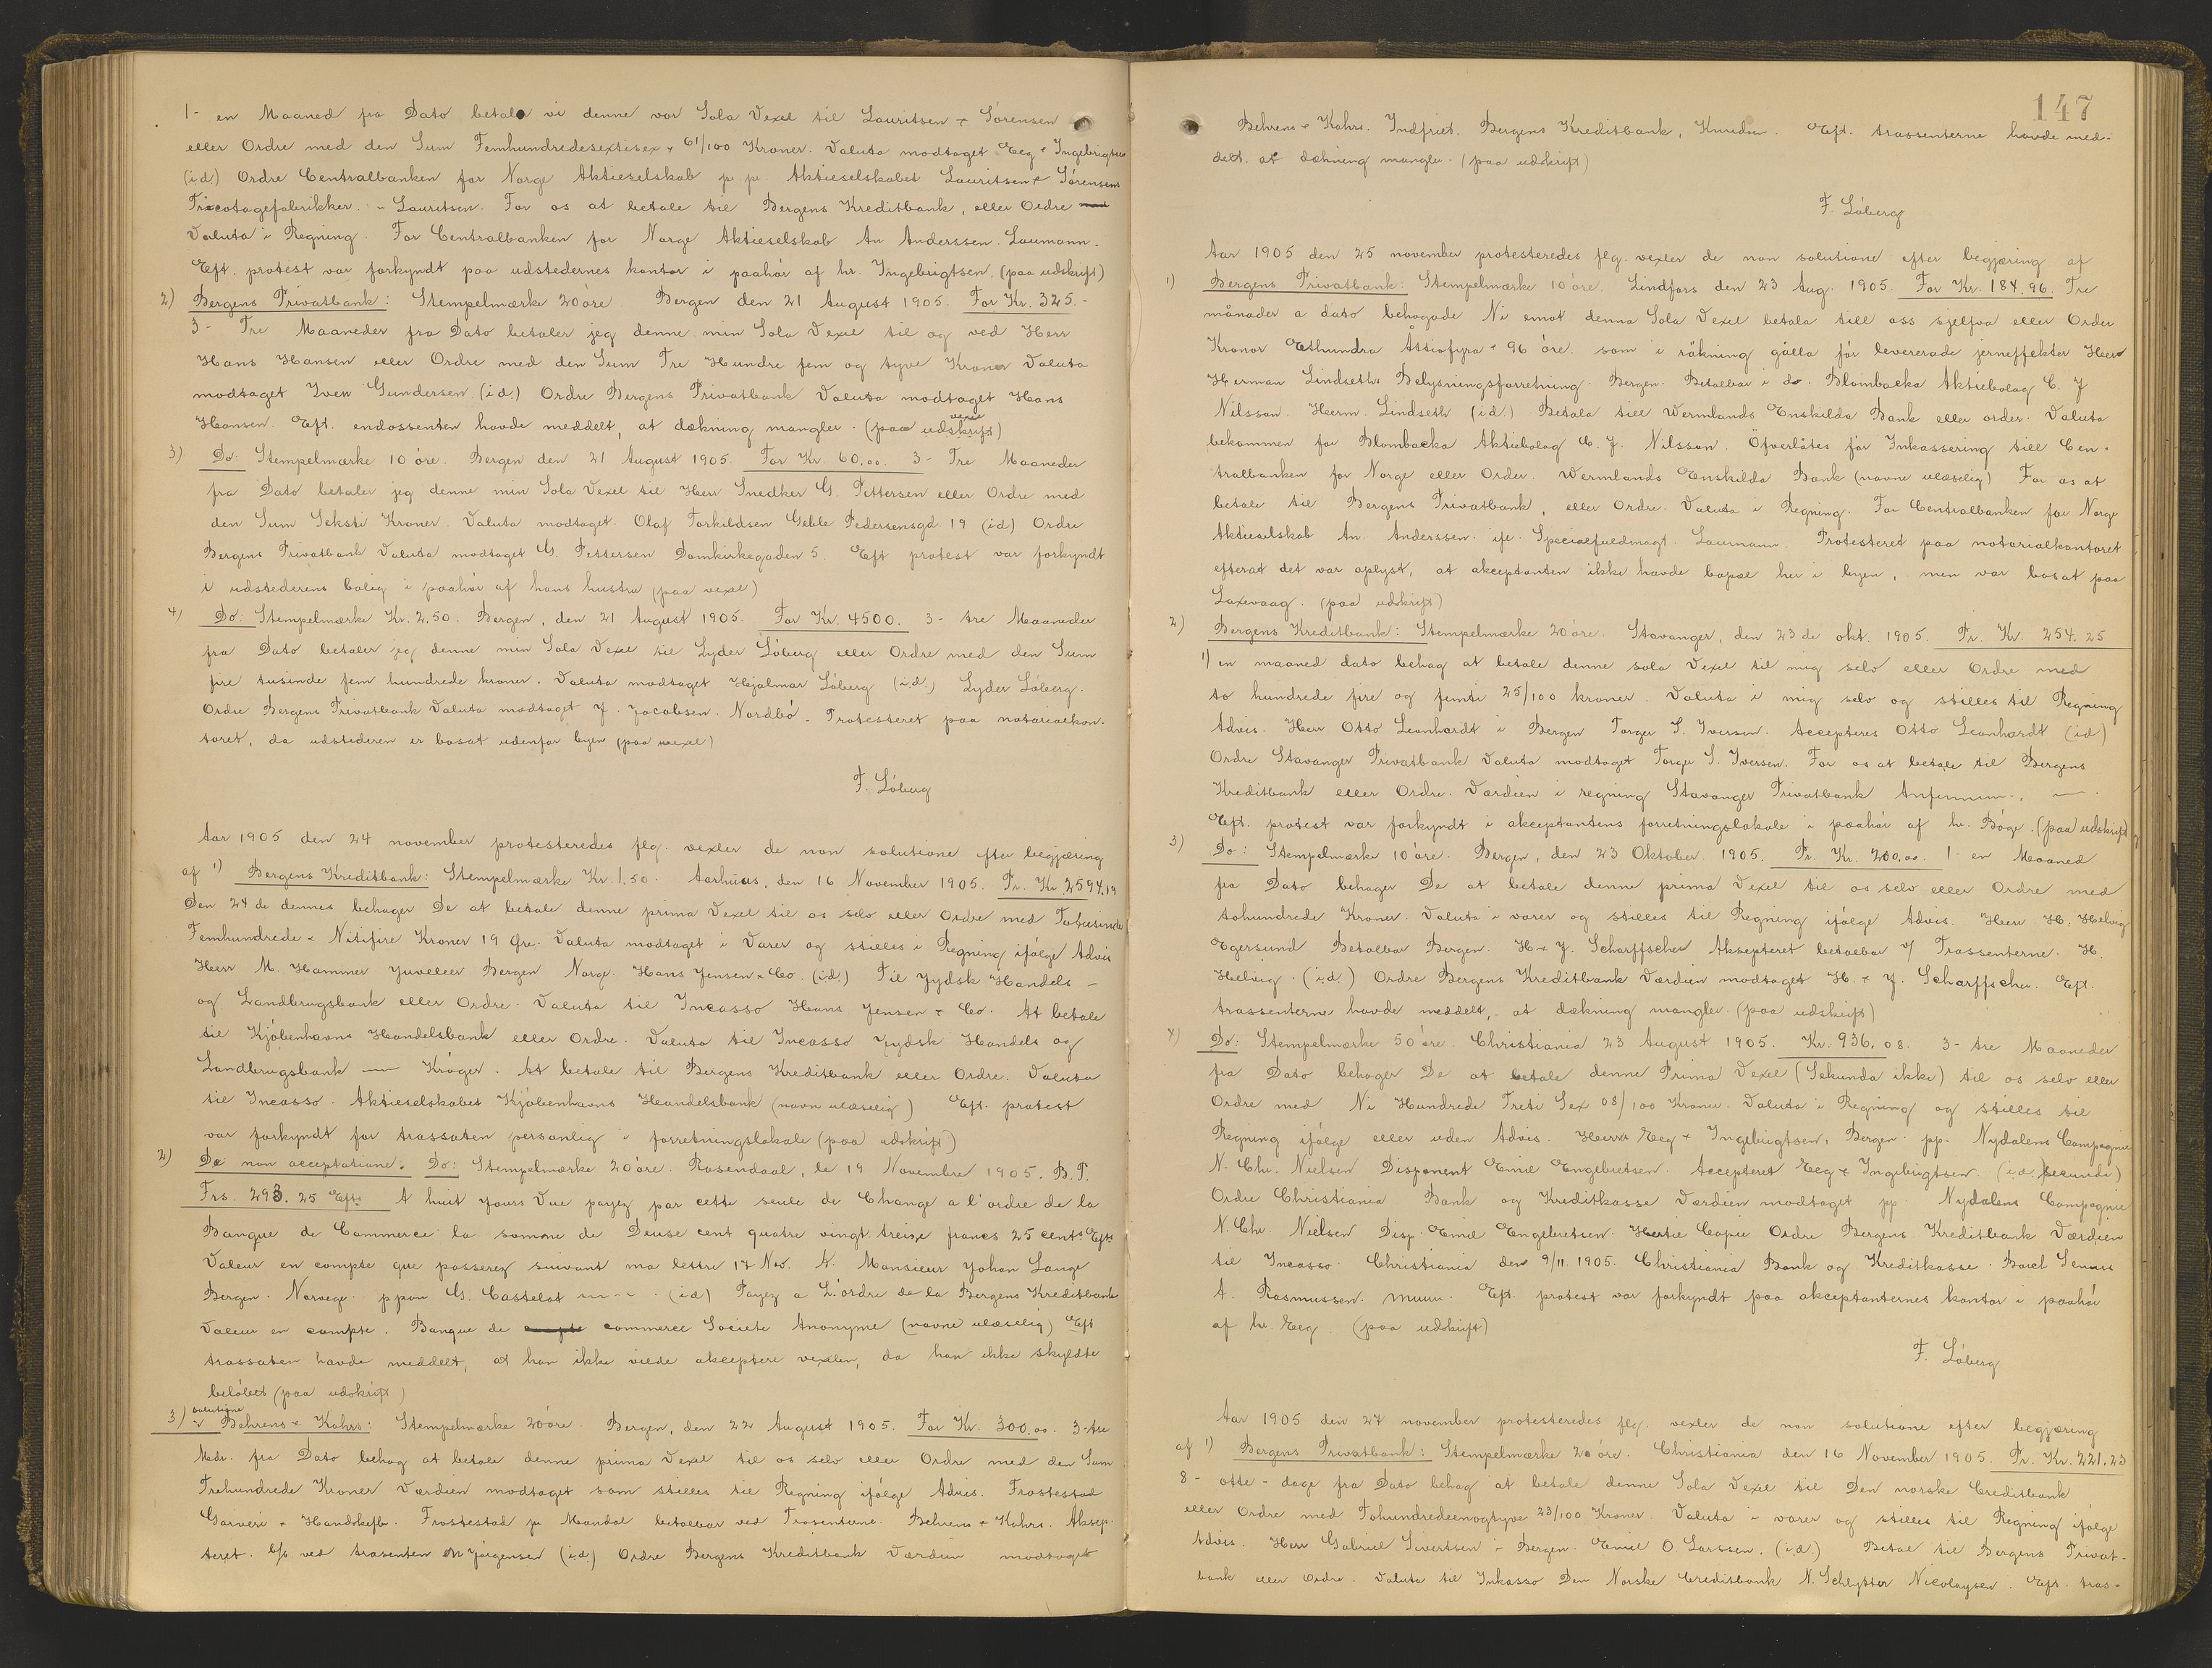 1- en Maaned fra Dato betale vi denne vor Sola Vexel til Lauritsen & Sörensen
eller Ordre med den Sum Femhundredesextisex & 61/100 Kroner. Valuta modtaget Eeg & Ingebrigtsen
(i.d.) Ordre Centralbanken for Norge Aktieselskab p.p. Aktieselskabet Lauritsen & Sörensens
Tricotagefabrikker. - Lauritsen. For os at betale til Bergens Kreditbank, eller Ordre
Valuta i Regning. For Centralbanken for Norge Aktieselskab An Anderssen. Laumann.
Eft. protest var forkyndt paa udstedernes kontor i paahör af hr. Ingebrigtsen. (paa udskrift)
2) Bergens Privatbank: Stempelmærke 20 öre. Bergen den 21 August 1905. For Kr. 325.-
3- Tre Maaneder fra Dato betaler jeg denne min Sola Vexel til og ved Herr
Hans Hansen eller Ordre med den Sum Tre Hundre fem og tyve Kroner Valuta
modtaget Iver Gundersen (i.d.) Ordre Bergens Privatbank Valuta modtaget Hans
Hansen. Eft. endossenten havde meddelt, at dækning mangler. (paa udskrift) vexel
3) Do: Stempelmærke 10 öre. Bergen den 21 August 1905. For Kr. 60.00. 3- Tre Maaneder
fra Dato betaler jeg denne min Sola Vexel til Herr Snedker G. Pettersen eller Ordre med
den Sum Seksti Kroner. Valuta modtaget. Olaf Torkildsen Geble Pedersensgd. 19 (i.d) Ordre
Bergens Privatbank Valuta modtaget G. Pettersen Domkirkegaden 5. Eft protest var forkyndt
i udstederens bolig i paahör af hans hustru (paa vexel)
4) Do: Stempelmærke Kr. 2.50. Bergen, den 21 August 1905. For Kr. 4500. 3- tre Maaneder
fra Dato betaler jeg denne min Sola Vexel til Lyder Löberg eller Ordre med den Sum
fire tusinde fem hundrede kroner. Valuta modtaget Hjalmar Löberg (i.d.) Lyder Löberg.
Ordre Bergens Privatbank Valuta modtaget J. Jacobsen. Nordbö. Protesteret paa notarialkon-
toret, da udstederen er bosat udenfor byen (paa vexel)
F. Löberg
Aar 1905 den 24 november protesteredes flg. vexler de non solutione efter begjæring
af 1) Bergens Kreditbank: Stempelmærke Kr. 1.50. Aarhuus, den 16 November 1905. Pr. Kr 2594.19
Den 24 de dennes behager De at betale denne prima Vexel til os selv eller Ordre med Totusinde
Femhundrede & Nitifire Kroner 19 Öre. Valuta modtaget i Varer og stilles i Regning ifölge Advis
Herr M. Hammer Juveleer Bergen Norge. Hans Jensen & Co. (i.d.) Til Jydsk Handels-
og Landbrugsbank eller Ordre. Valuta til Incasso Hans Jensen & Co. At betale
til Kjöbenhavns Handelsbank eller Ordre. Valuta til Incasso Jydsk Handels og
Landbrugsbank — Kröger. At betale til Bergens Kreditbank eller Ordre. Valuta
til Incasso. Aktieselskabet Kjöbenhavns Handelsbank (navn ulæselig) Eft. protest
var forkyndt for trassaten personlig i forretningslokale (paa udskrift)
2) De non acceptatione: Do: Stempelmærke 20 öre. Rosendaal, le 19 Novembre 1905. B. P.
Frs. 293.25 Efts A huit jours Vue payez par cette seule de Change a l'ordre de la
Banque de Commerce la somme de Deuse cent quatre vingt treize francs 25 cents Efts
Valeur en compte que passerez suivant ma lettre 17 Nov. A. Monsieur Johan Lange
Bergen. Norvege. ppon G. Castelot (i.d) Payez a L'ordre de la Bergens Kreditbank
Valeur en compte. Banque de commerce Societe Anonyme (navne ulæselig) Eft
trassaten havde meddelt, at han ikke vilde akceptere vexlen, da han ikke skyldte
belöbet (paa udskrift)
3) solutione Behrens & Kahrs: Stempelmærke 20 öre. Bergen, den 22 August 1905. For Kr. 300.00. 3-tre
Mdr. fra Dato behag at betale denne prima Vexel til os selv eller Ordre med den Sum
Trehundrede Kroner Værdien modtaget som stilles til Regning ifölge Advis. Frostestad
Garveri & Handskefb. Frostestad pr Mandal betalbar ved Trasenterne. Behrens & Kahrs. Aksep-
teret. b/s ved trasenten M Jörgensen (i.d.) Ordre Bergens Kreditbank Værdien modtaget
147
Behrens & Kahrs. Indfriet. Bergens Kreditbank, Knudsen. Eft. trassenterne havde med-
delt at dækning mangler. (paa udskrift)
F. Löberg
Aar 1905 den 25 november protesteredes flg. vexler de non solutione efter begjæring af
1) Bergens Privatbank: Stempelmærke 10 öre. Lindfors den 23 Aug. 1905. For Kr. 184.96. Tre
månader a dato behagade Ni emot denna Sola Vexel betala till oss sjelfva eller Order
Kronor Ethundra Åttiofyra & 96 öre. som i räkning gälla för levererade jerneffekter Herr
Herman Lindseths Belysningsforretning. Bergen. Betalbar i do. Blombacka Aktiebolag C. J
Nilsson. Herm. Lindseth (i.d.) Betala till Wermlands Enskilda Bank eller order. Valuta
bekommen for Blombacka Aktiebolag C. J. Nilsson. Öfverlåtes för Inkassering till Cen-
tralbanken for Norge eller Order. Wermlands Enskilda Bank (navne ulæselig) For os at
betale til Bergens Privatbank, eller Ordre. Valuta i Regning. For Centralbanken for Norge
Aktieselskab An. Anderssen. ife. Specialfuldmagt. Laumann. Protesteret paa notarialkontoret
efterat det var oplyst, at akceptanten ikke havde bopæl her i byen, men var bosat paa
Laxevaag. (paa udskrift)
2) Bergens Kreditbank: Stempelmærke 20 öre. Stavanger, den 23 de okt. 1905. Pr. Kr. 254.25
1) en maaned dato behag at betale denne sola Vexel til mig selv eller Ordre med
to hundrede fire og femti 25/100 kroner. Valuta i mig selv og stilles til Regning
Advis. Herr Otto Leonhardt i Bergen Torger S. Iversen. Accepteres Otto Leonhardt (i.d)
Ordre Stavanger Privatbank Valuta modtaget Torger S. Iversen. For os at betale til Bergens
Kreditbank eller Ordre. Værdien i regning Stavanger Privatbank
Eft. protest var forkyndt i akceptantens forretningslokale i paahör af hr. Böge. (paa udskrift)
3) Do: Stempelmærke 10 öre. Bergen, den 23 Oktober. 1905. Pr. Kr. 200.00. 1- en Maaned
fra Dato behager De at betale denne prima Vexel til os selv eller Ordre med
tohundrede Kroner. Valuta i varer og stilles til Regning ifölge Advis. Herr H. Helvig
Egersund Betalbar Bergen. H & J. Scharffscher Aksepteret betalbar v/ Trassenterne. H.
Helvig. (i.d.) Ordre Bergens Kreditbank Værdien modtaget H. & J. Scharffscher. Eft.
trassenterne havde meddelt, at dækning mangler. (paa udskrift)
4) Do: Stempelmærke 50 öre. Christiania 23 August 1905. Kr. 936.08. 3- tre Maaneder
fra Dato behager De at betale denne Prima Vexel (Sekunda ikke) til os selv eller
Ordre med Ni Hundrede Treti Sex 08/100 Kroner. Valuta i Regning og stilles til
Regning ifölge eller uden Advis. Herrer Eeg & Ingebrigtsen, Bergen. pp. Nydalens Compagnie
N. Chr. Nielsen Disponent Emil Engebretsen. Accepteret Eeg & Ingebrigtsen (i.d. secundo)
Ordre Christiania Bank og Kreditkasse Værdien modtaget pp. Nydalens Compagnie
N. Chr. Nielsen Disp. Emil Engebretsen. Hertil Copie Ordre Bergens Kreditbank Værdien
til Incasso. Christiania den 9/11. 1905. Christiania Bank og Kreditkasse.
A. Rasmussen. Eft. protest var forkyndt paa akceptanternes kontor i paahör
af hr. Eeg. (paa udskrift)
F. Löberg
Aar 1905 den 27 november protesteredes flg. vexler de non solutione efter begjæring
af 1) Bergens Privatbank: Stempelmærke 20 öre. Christiania den 16 November 1905. Pr. Kr. 221.23
8- otte- dage fra Dato behag at betale denne Sola Vexel til Den norske Creditbank
eller Ordre med Tohundredeenogtyve 23/100 Kroner. Valuta i varer og stilles til Regning ifölge
Advis. Herr Gabriel Sivertsen i Bergen. Emil O. Larssen. (i.d.) Betal til Bergens Privat-
bank eller Ordre. Valuta til Inkasso Den Norske Creditbank N. Schlytter Nicolaysen. Eft. tras-